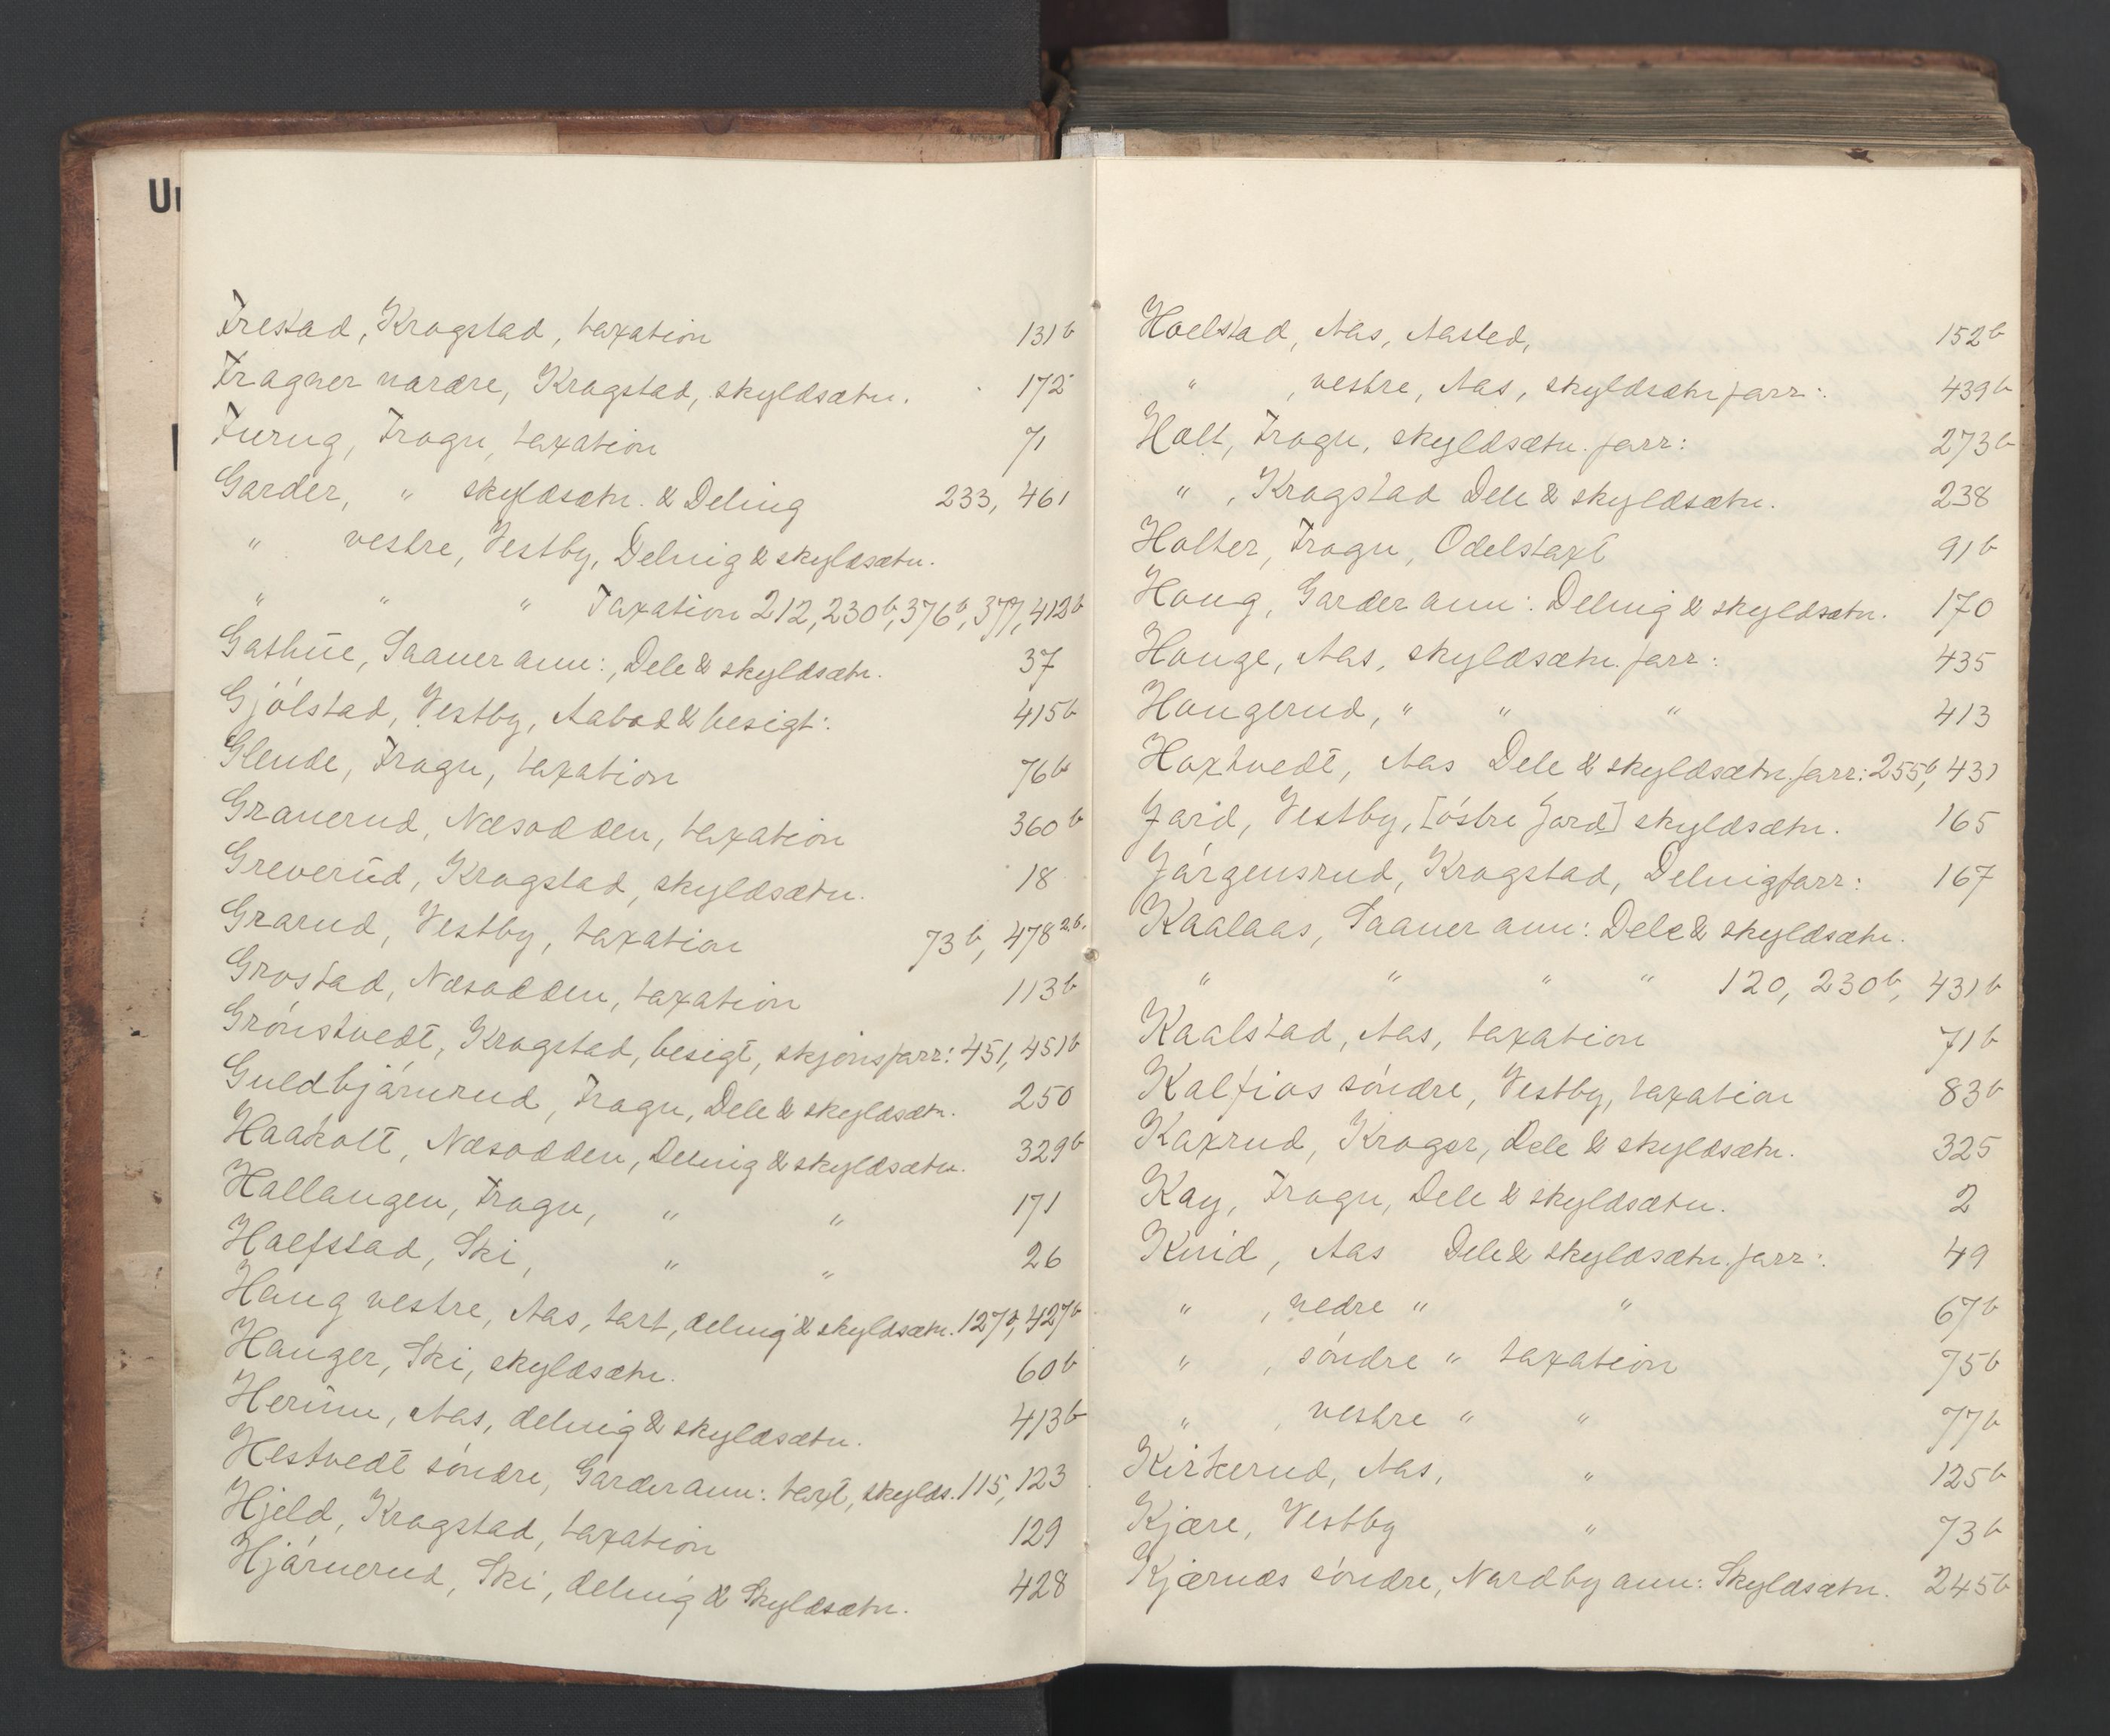 Ur
Frestad, Krogstad, taxation 131b
Frogner nordre, Krogstad, skyldsætn. 172
Furug, Frogn, taxation 71
Garder, " skyldsætn. & Deling 233, 461
" vestre, Vestby, Delnig & skyldsætn.
" " " Taxation 212, 230b, 376b, 377, 412b
Gathue, Saaner ann:, Dele & skyldsætn. 37
Gjölstad, Vestby, Aabod & besigt: 415b
Glende, Frogn, taxation 76b
Granerud, Næsodden, taxation 360b
Greverud, Krogstad, skyldsætn. 18
Grorud, Vestby, taxation 73b, 478 2.b.
Grostad, Næsodden, taxation 113b
Grönstvedt, Krogstad, besigt, skjönsforr: 451, 451b
Guldbjörnrud, Frogn, Dele & skyldsætn. 250
Haakolt, Næsodden, Delnig & skyldsætn. 329b
Hallangen, Frogn, " " 171
Halfstad, Ski, " " 26
Haug vestre, Aas, tart, delnig & skyldsætn. 127b, 427b
Hauger, Ski, skyldsætn. 60b
Herunn, Aas, delnig & skyldsætn. 413b
Hestvedt söndre, Garder ann: taxt, skylds. 115, 123
Hjeld, Krogstad, taxation 129
Hjörnerud, Ski, delnig & Skyldsætn. 428
Hoelstad, Aas, Aasted, 152b
" , vestre, Aas, skyldsætn forr: 439b
Holt, Frogn, skyldsætn. forr: 273b
" , Krogstad Dele & skyldsætn. 238
Holter, Frogn, Odelstaxt 91b
Houg, Garder ann: Delnig & skyldsætn. 170
Houge, Aas, skyldsætn. forr: 435
Hougerud, " " " 413
Hoxtvedt, Aas Dele & skyldsætn. forr: 255b, 431
Jard, Vestby, [östre Jord] skyldsætn. 165
Jörgensrud, Krogstad, Delnigforr: 167
Kaalaas, Saaner ann: Dele & skyldsætn.
" " " " 120, 230b, 431b
Kaalstad, Aas, taxation 71b
Kalfjos söndre, Vestby, taxation 83b
Kaxrud, Kroger, Dele & skyldsætn. 325
Kay, Frogn, Dele & skyldsætn. 2
Knid, Aas Dele & skyldsætn. forr: 49
" , nedre " " 67b
" , söndre " taxation 75b
" , vestre " " 77b
Kirkerud, Aas, " 125b
Kjære, Vestby " 73b
Kjærnæs söndre, Nordby ann: Skyldsætn. 245b